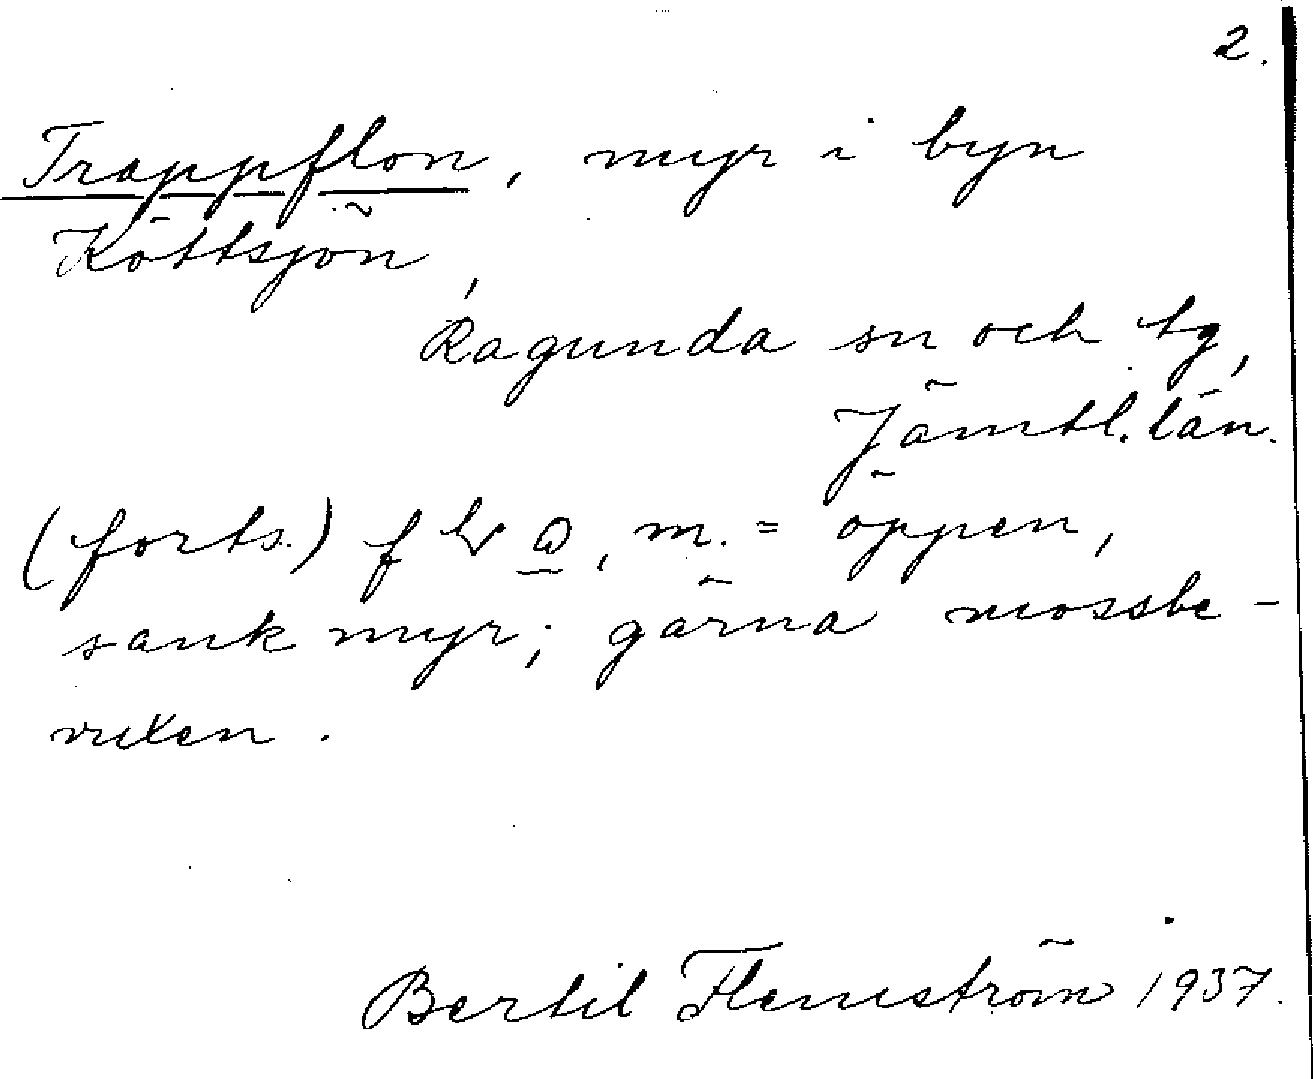 2.
Trappflon, myr i byn
Köttsjön,
Ragunda sn och tg,
Jämtl. län.
(forts.) f m. = öppen,
sank myr; gärna mossbe-
vuxen.
Bertil Flemström 1937.